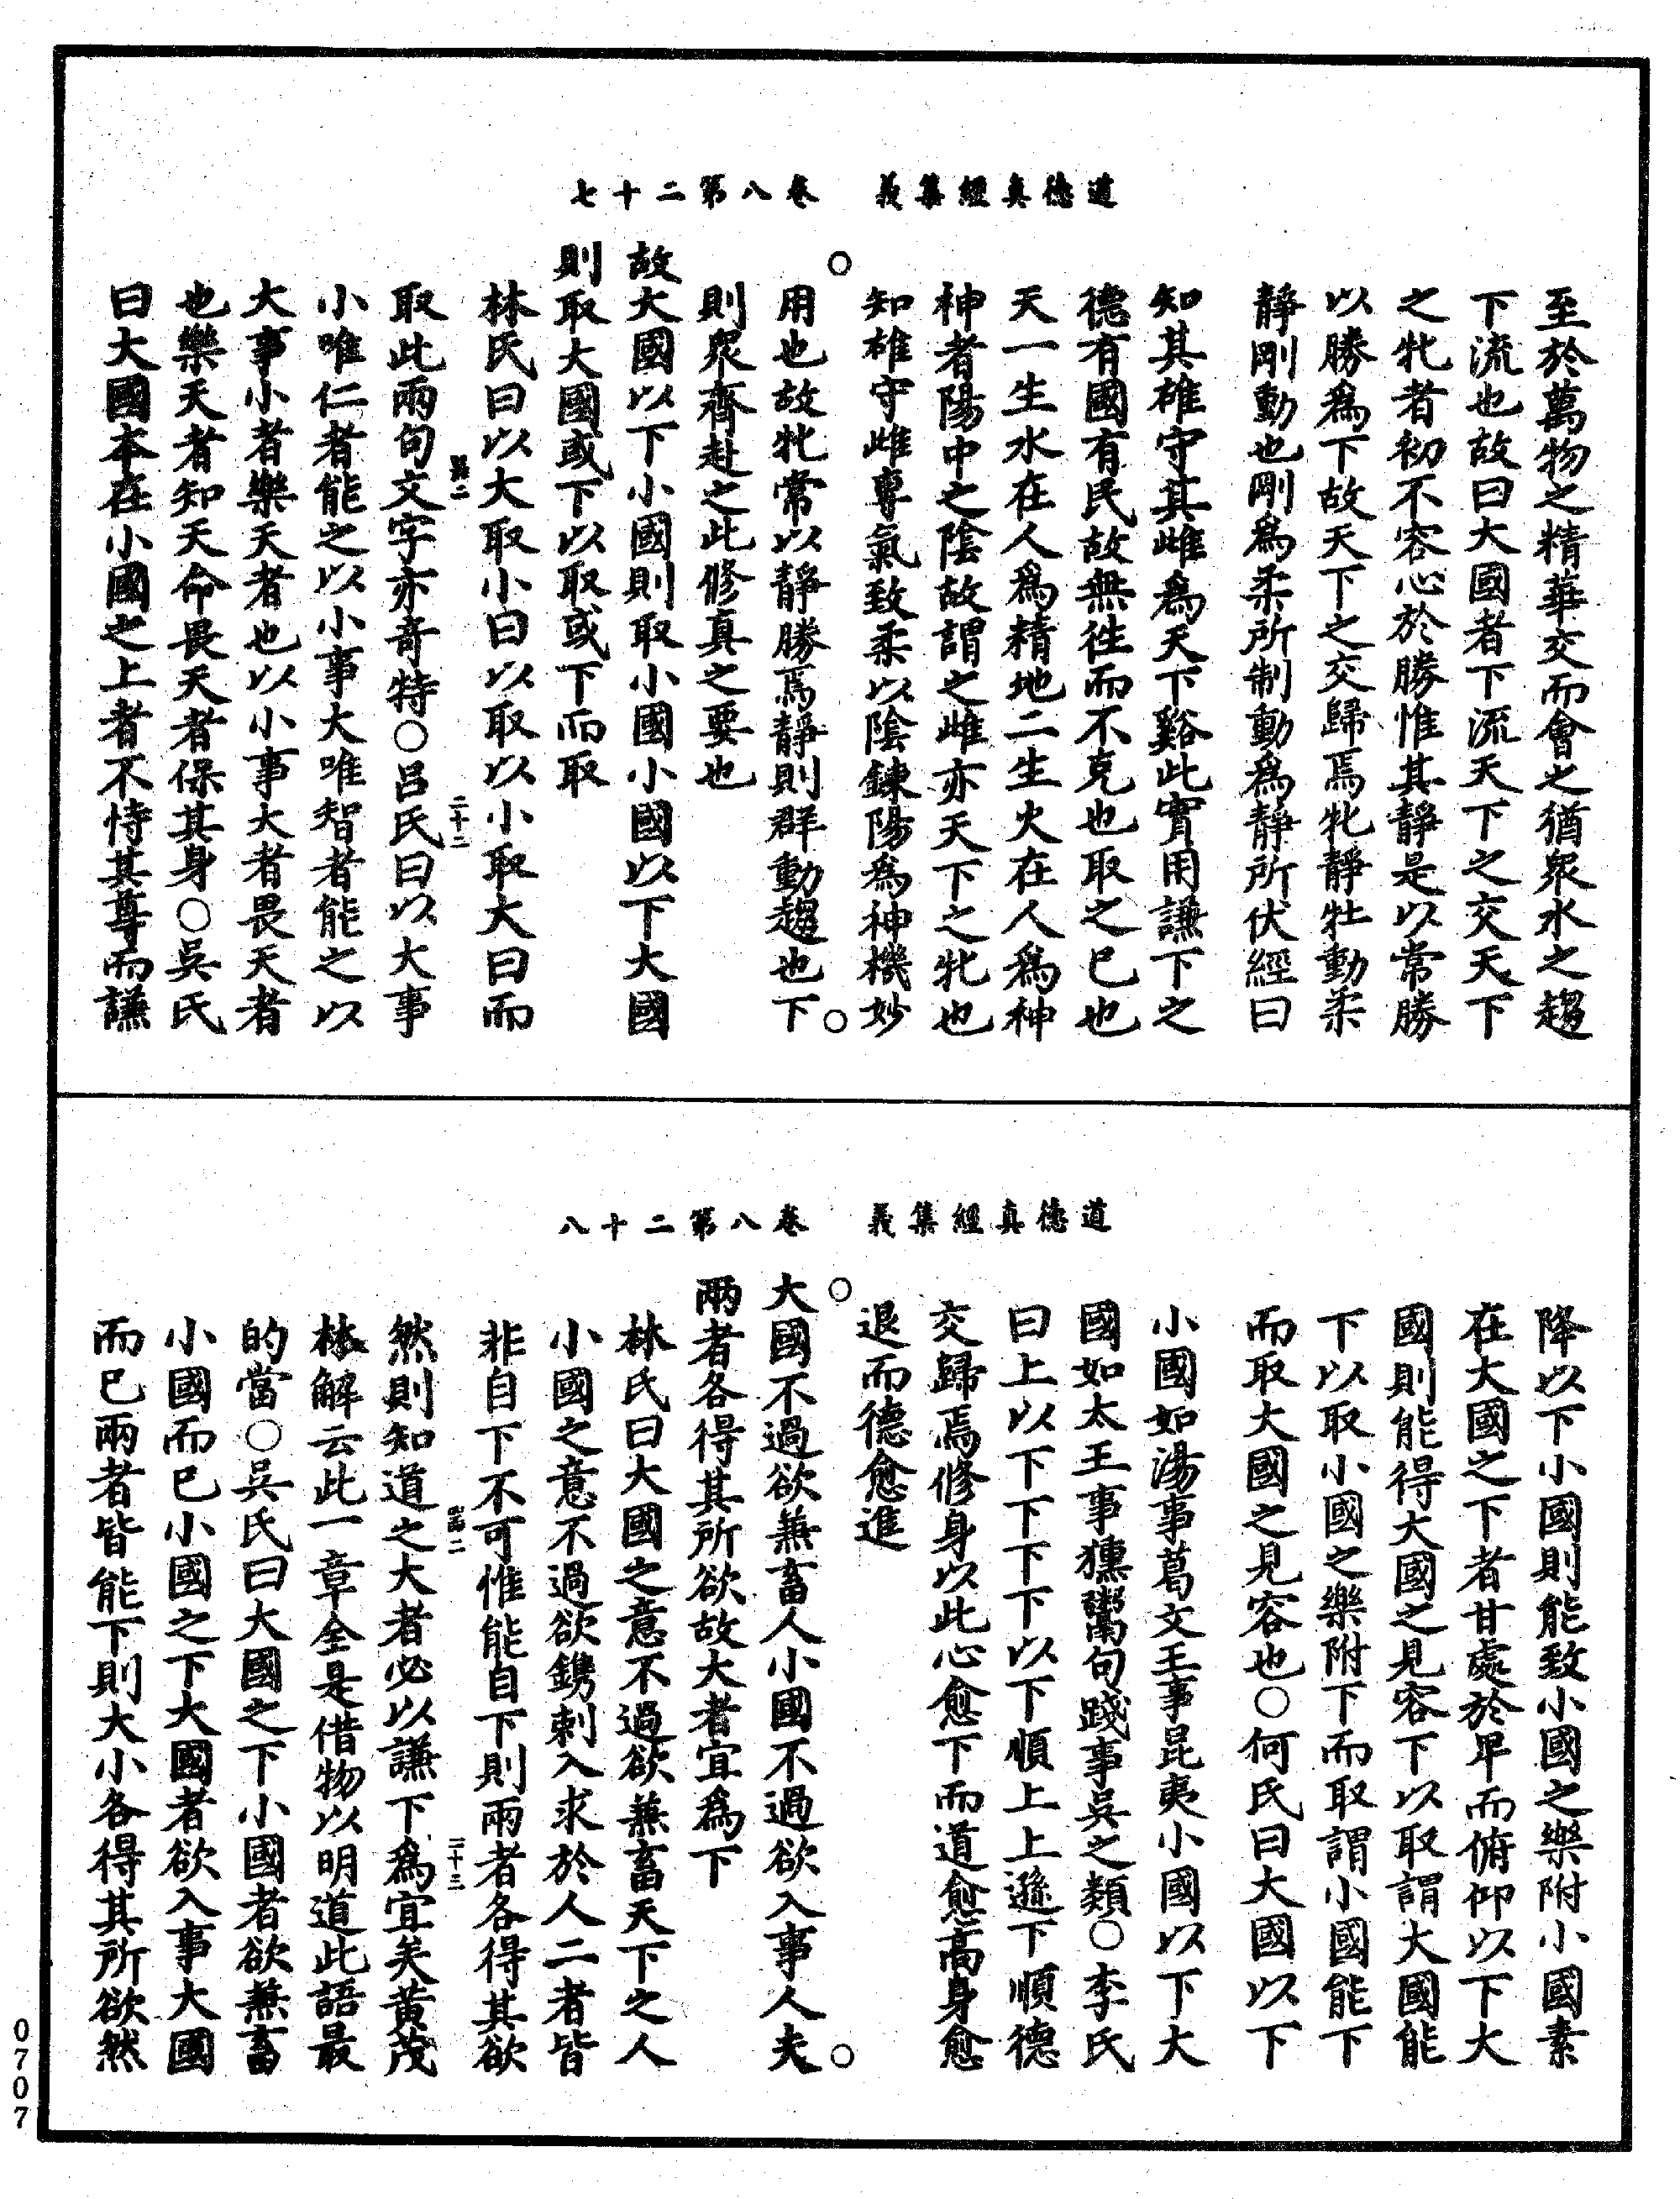 道德真經集義　卷八第二十七
至於萬物之精華交而會之猶衆水之趨
下流也故曰大國者下流天下之交天下
之牝者初不容心於勝惟其靜是以常勝
以勝爲下故天下之交歸焉牝靜牡動柔
靜剛動也剛爲柔所制動爲靜所伏經曰
知其雄守其雌爲天下谿此實用謙下之
德有國有民故無往而不克也取之已也
天一生水在人爲精地二生火在人爲神
神者陽中之陰故謂之雌亦天下之牝也
知雄守雌專氣致柔以陰鍊陽爲神機妙
用也故牝常以靜勝焉靜則群動趨也下
則衆齊赴之此修真之要也
故大國以下小國則取小國小國以下大國
則取大國或下以取或下而取
林氏曰以大取小曰以取以小取大曰而
二十二
取此兩句文字亦奇特○呂氏曰以大事
小唯仁者能之以小事大唯智者能之以
大事小者樂天者也以小事大者畏天者
也樂天者知天命畏天者保其身○吳氏
曰大國本在小國之上者不恃其尊而謙
道德真經集義　卷八第二十八
降以下小國則能致小國之樂附小國素
在大國之下者甘處於卑而俯仰以下大
國則能得大國之見容下以取謂大國能
下以取小國之樂附下而取謂小國能下
而取大國之見容也○何氏曰大國以下
小國如湯事葛文王事昆夷小國以下大
國如太王事獯鬻句踐事吳之類○李氏
曰上以下下下下以下順上上遜下順德
交歸焉修身以此心愈下而道愈高身愈
退而德愈進
大國不過欲兼畜人小國不過欲入事人夫
兩者各得其所欲故大者宜爲下
林氏曰大國之意不過欲兼畜天下之人
小國之意不過欲鐫刺入求於人二者皆
非自下不可惟能自下則兩者各得其欲
二十三
然則知道之大者必以謙下爲宜矣黃茂
林解云此一章全是借物以明道此語最
的當○吳氏曰大國之下小國者欲兼畜
小國而已小國之下大國者欲入事大國
而已兩者皆能下則大小各得其所欲然
0707